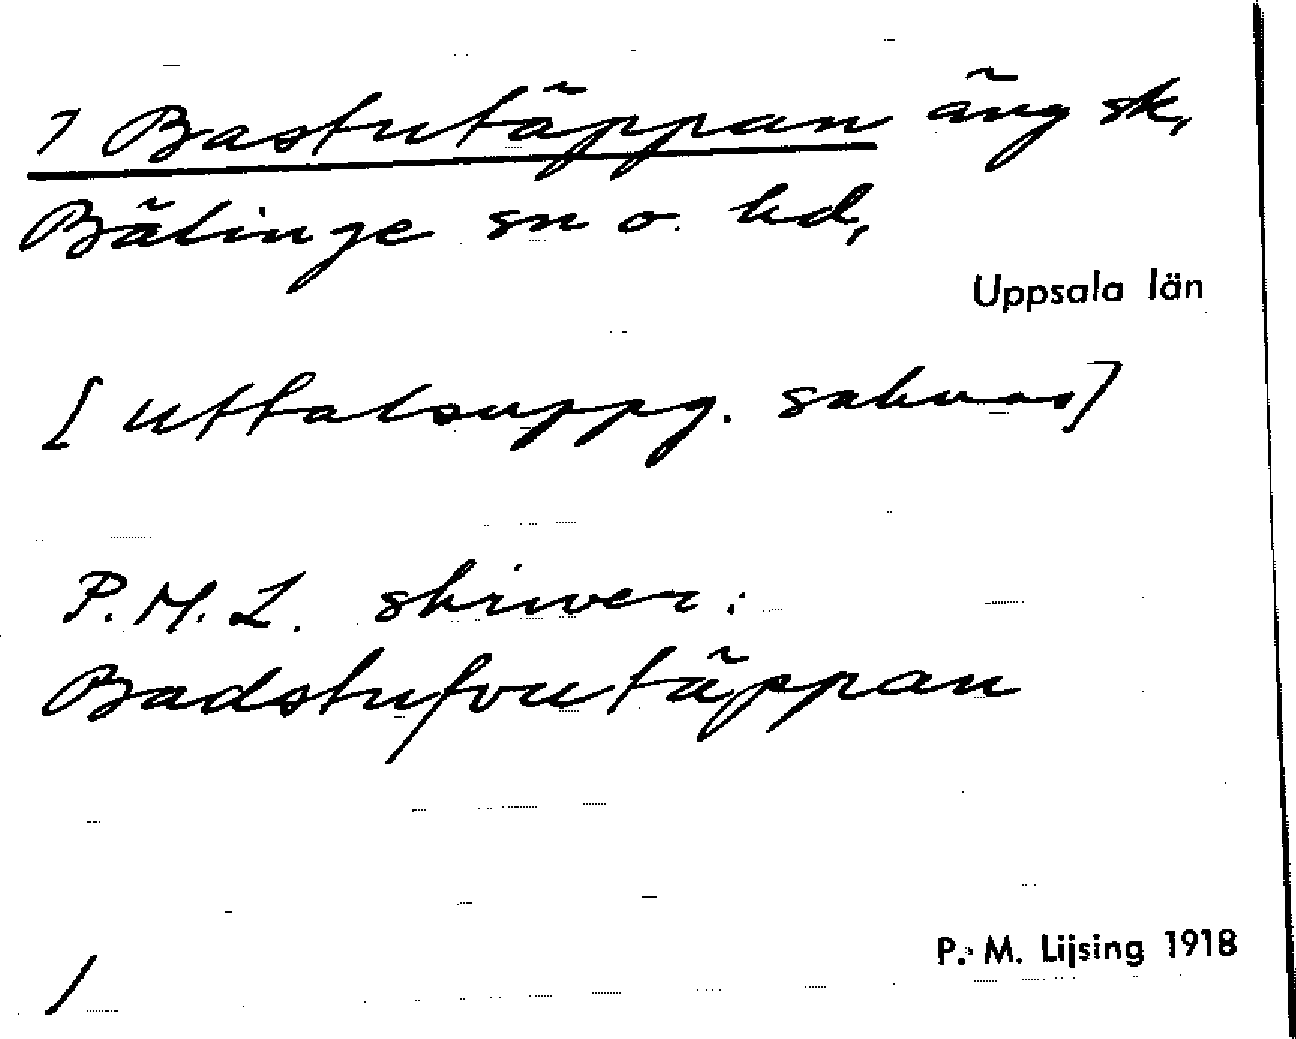 7 Bastutäppan äng sk,
Bälinge sn o. hd,
Uppsala län
[Uttalsuppg. saknas]
P.M.L. skriver:
Badstufvutäppan
P. M. Lijsing 1918
/